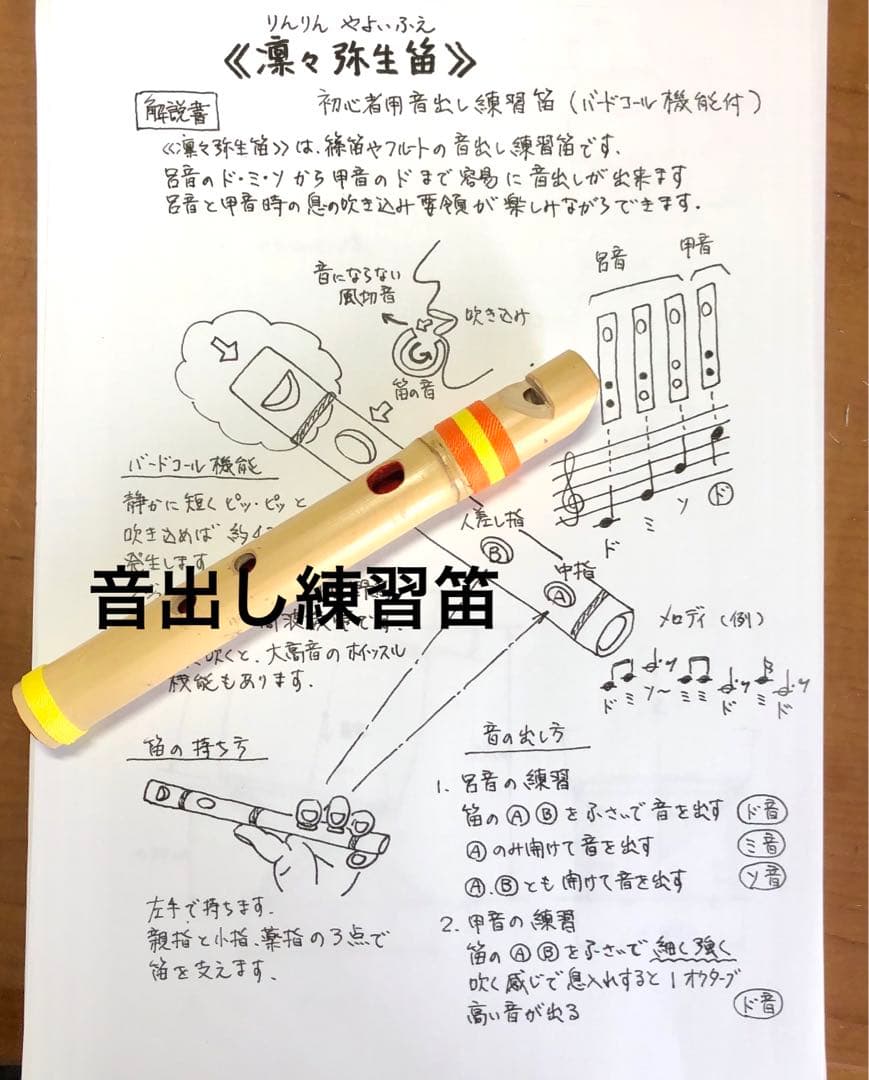 りんりん やよいふえ
《凛々弥生笛》
解説書
初心者用音出し練習笛(バードコール機能付)
《凛々弥生笛》は、篠笛やフルートの音出し練習笛です.
呂音のド・ミ・ソから甲音のドまで容易に音出しが出来ます
呂音と甲音時の息の吹き込み要領が楽しみながらできます.
音にならない
風切音
吹き込け
笛の音
呂音
甲音
ド
ミ
ソ
ド
バードコール機能
静かに短くピッ・ピッと
吹き込めば約4
発生します
吹くと、大高音のホイッスル
機能もあります.
音出し練習笛
人差し指
B
中指
A
メロディ(例)
ド ミ ソ〜 ミ ミ ド ミ ド
笛の持ち方
左手で持ちます.
親指と小指、薬指の3点で
笛を支えます.
音の出し方
1. 呂音の練習
笛のⒶⒷをふさいで音を出す ド音
Ⓐのみ開けて音を出す ミ音
Ⓐ.Ⓑとも開けて音を出す ソ音
2. 甲音の練習
笛のⒶⒷをふさいで細く強く
吹く感じで息入れすると1オクターブ
高い音が出る ド音